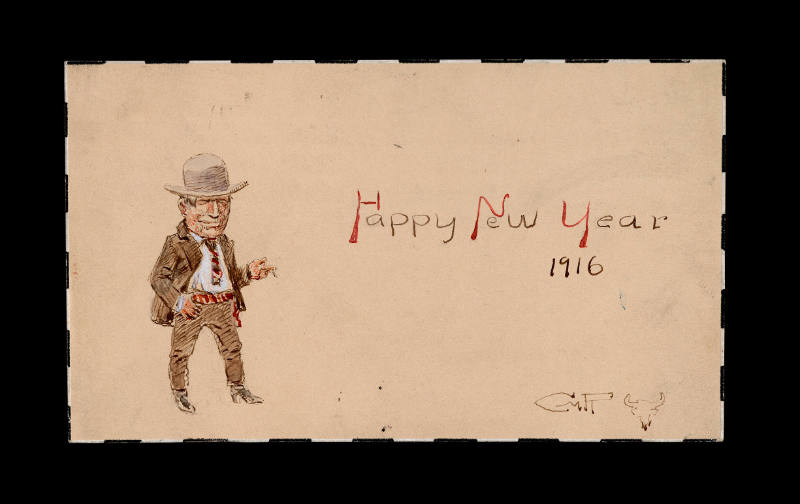 Happy New Year
1916
CMR